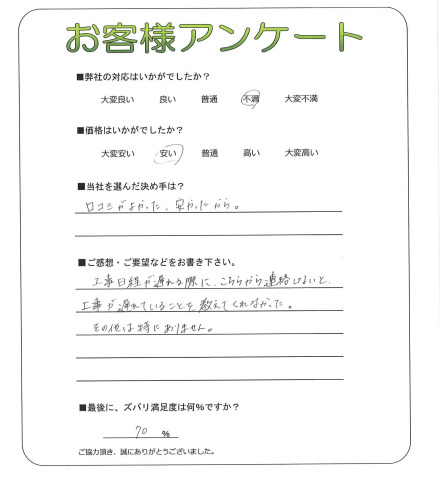 お客様アンケート
■弊社の対応はいかがでしたか?
大変良い 良い 普通 不満 大変不満
■価格はいかがでしたか?
大変安い 安い 普通 高い 大変高い
■当社を選んだ決め手は?
口コミがよかった、安かったから。
■ご感想・ご要望などをお書き下さい。
工事日経が遅れる際に、こちらから連絡しないと、
工事が遅れていることを教えてくれなかった。
その他は特にありません。
■最後に、ズバリ満足度は何%ですか?
70 %
ご協力頂き、誠にありがとうございました。